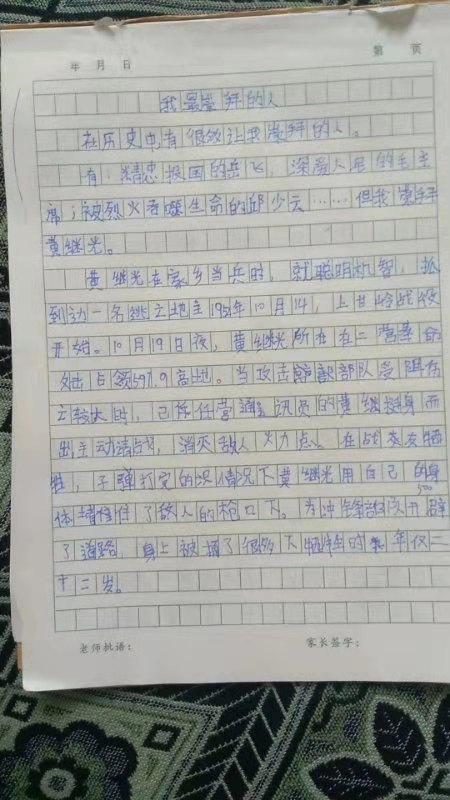 第 页
年 月 日
我最崇拜的人
在历史中有很多让我崇拜的人。
有:精忠报国的岳飞,深爱人民的毛主
席;被烈火吞噬生命的邱少云……但我崇拜
黄继光。
黄继光在家乡当兵时,就聪明机智,抓
到过一名逃亡地主1952年10月14,上甘岭战役
开始。10月19日夜,黄继光所在在二营奉命
占领597.9高地。当攻击部队受阻
较大时,已任营通讯员的黄继挺身而
出主动请战,消灭敌人火力点。在战友牺
牲,子弹打完的情况下黄继光用自己的身
体堵住了敌人的枪口下。为冲锋部队开辟
了道路 身上被打了很多下牺牲时年仅二
十二岁。
老师批语: 家长签字: